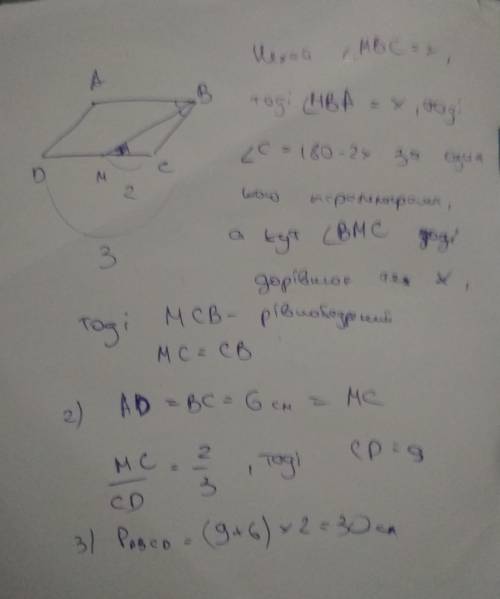 Нехай ∠MBC = x,
A
B
тоді ∠MBA = x, тоді
∠C = 180 - 2x за
D
M
C
2
а кут ∠BMC тоді
3
дорівнює x,
тоді MCB - рівнобедрений
MC = CB
2) AD = BC = 6 см = MC
MC/CD = 2/3, тоді CD = 9
3) PABCD = (9+6) × 2 = 30 см